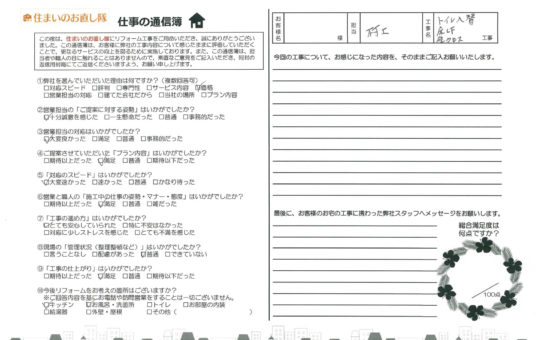 住まいのお直し隊 仕事の通信簿
この度は、住まいのお直し隊にリフォーム工事をご用命いただき、誠にありがとうござい
ました。この通信簿は、お客様に弊社の工事内容について感じたままに評価していただく
ことで、更なるサービスの向上を図るために実施しております。また、この通信簿は、担
当者や職人の目に触れることはありませんので、率直なご意見をご記入いただき、同封の
①弊社を選んでいただいた理由は何ですか?(複数回答可)
□対応スピード □評判 □専門性 □サービス内容 □価格
□営業担当の対応 □建てた会社だから □当社の場所 □プラン内容
②営業担当の「ご提案に対する姿勢」はいかがでしたか?
□十分誠意を感じた □一生懸命だった □普通 □事務的だった
③営業担当の対応はいかがでしたか?
□大変良かった □満足 □普通 □事務的だった
④ご提案させていただいた「プラン内容」はいかがでしたか?
□期待以上だった □満足 □普通 □期待以下だった
⑤「対応のスピード」はいかがでしたか?
□大変速かった □速かった □普通 □かなり待った
⑥営業と職人の「施工中の仕事の姿勢・マナー・態度」はいかがでしたか?
□期待以上だった □満足 □普通 □雑だった
⑦「工事の進め方」はいかがでしたか?
□とても安心していられた □特に不安はなかった
□対応に少しストレスを感じた □とても不満を感じた
⑧現場の「管理状況(整理整頓など)」はいかがでしたか?
□言うことなし □配慮があった □普通 □できていない
⑨「工事の仕上がり」はいかがでしたか?
□期待以上だった □満足 □普通 □期待以下だった
⑩今後リフォームをお考えの箇所はございますか?
※ご回答内容を基にお電話や訪問営業をすることは一切ございません。
□キッチン □お風呂・洗面所 □トイレ □お部屋の内装
□給湯器 □外壁・屋根 □その他( )
お客様名 様 担当 工事名 トイレ入替 工事
今回の工事について、お感じになった内容を、そのままご記入お願いいたします。
最後に、お客様のお宅の工事に携わった弊社スタッフへメッセージをお願いします。
総合満足度は
何点ですか?
/100点